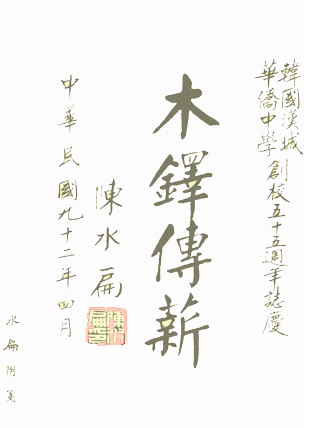 韓國漢城
華僑中學創校五十五週年誌慶
木鐸傳薪
陳水扁
中華民國九十二年四月
水扁用箋